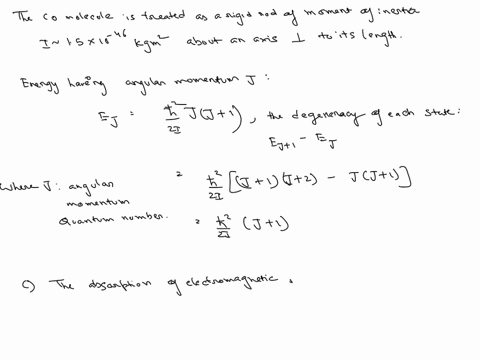 The CO molecule is treated as a rigid rod of moment of inertia
I ~ 1.5 × 10⁻⁴⁶ kgm² about an axis ⊥ to its length.
Energy having angular momentum J :
E_J = ħ²/2I J(J+1) , the degeneracy of each state :
E_J+1 - E_J
Where J : angular momentum Quantum number.
= ħ²/2I [(J+1)(J+2) - J(J+1)]
= ħ²/2I (J+1)
c) The absorption of electromagnetic .